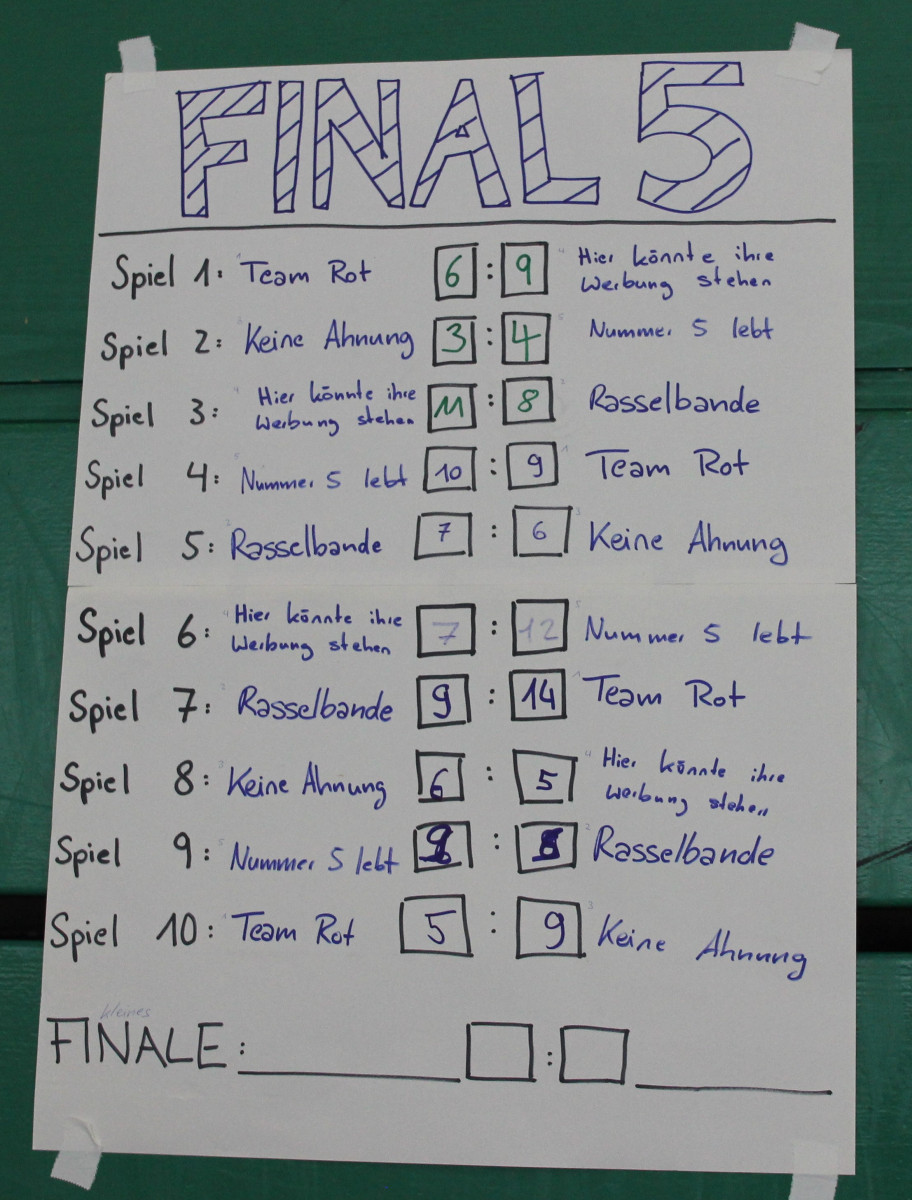 FINAL 5
Spiel 1: Team Rot 6 : 9 Hier könnte ihre
Werbung stehen
Spiel 2: Keine Ahnung 3 : 4 Nummer 5 lebt
Spiel 3: Hier könnte ihre
Werbung stehen 11 : 8 Rasselbande
Spiel 4: Nummer 5 lebt 10 : 9 Team Rot
Spiel 5: Rasselbande 7 : 6 Keine Ahnung
Spiel 6: Hier könnte ihre
Werbung stehen 7 : 12 Nummer 5 lebt
Spiel 7: Rasselbande 9 : 14 Team Rot
Spiel 8: Keine Ahnung 6 : 5 Hier könnte ihre
Werbung stehen
Spiel 9: Nummer 5 lebt : Rasselbande
Spiel 10: Team Rot 5 : 9 Keine Ahnung
kleines
FINALE: :